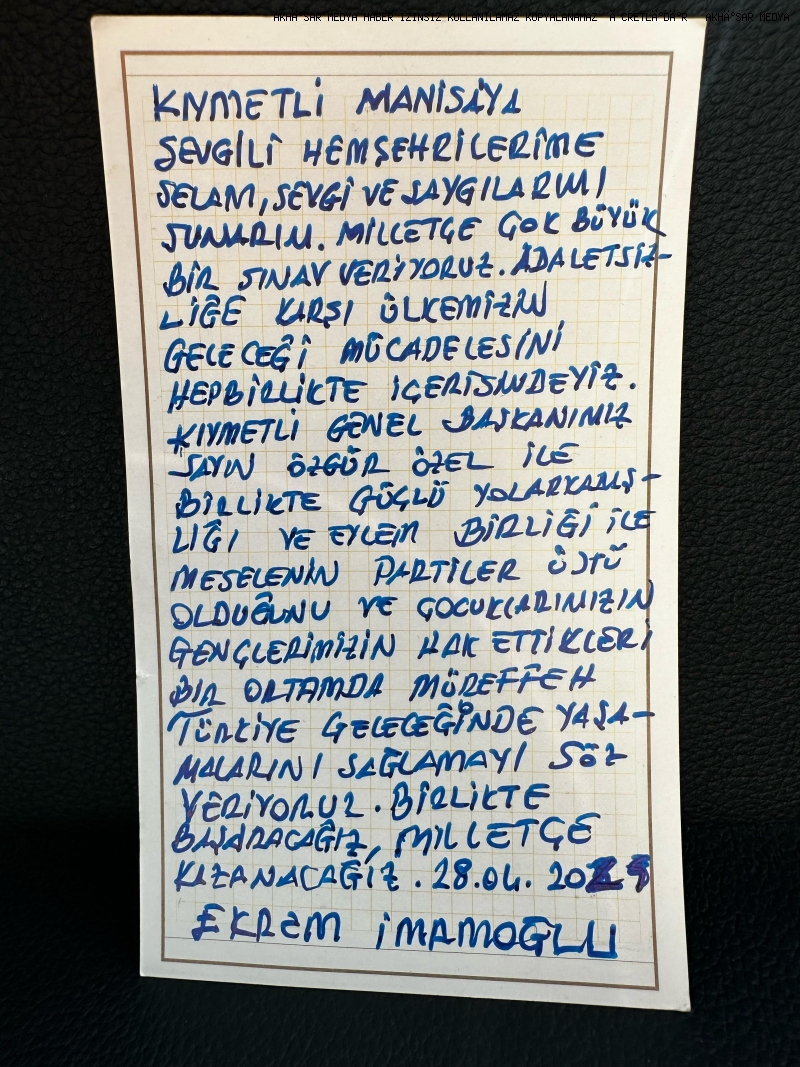 AKHA SAR MEDYA HABER IZINSIZ KULLANILAMAZ KOPYALANAMAZ
KIYMETLİ MANİSA'YA
SEVGİLİ HEMŞEHRİLERİME
SELAM, SEVGİ VE SAYGILARIMI
SUNARIM. MİLLETÇE ÇOK BÜYÜK
BİR SINAV VERİYORUZ. ADALETSİZ-
LİĞE KARŞI ÜLKEMİZİN
GELECEĞİ MÜCADELESİNİ
HEPBİRLİKTE İÇERİSİNDEYİZ.
KIYMETLİ GENEL BAŞKANIMIZ
SAYIN ÖZGÜR ÖZEL İLE
BİRLİKTE GÜÇLÜ YOLARKADAŞ-
LIĞI VE EYLEM BİRLİĞİ İLE
MESELENİN PARTİLER ÜSTÜ
OLDUĞUNU VE ÇOCUKLARIMIZIN
GENÇLERİMİZİN HAK ETTİKLERİ
BİR ORTAMDA MÜREFFEH
TÜRKİYE GELECEĞİNDE YAŞA-
MALARINI SAĞLAMAYI SÖZ
VERİYORUZ. BİRLİKTE
BAŞARACAĞIZ, MİLLETÇE
KAZANACAĞIZ. 28.04. 2025
EKREM İMAMOĞLU